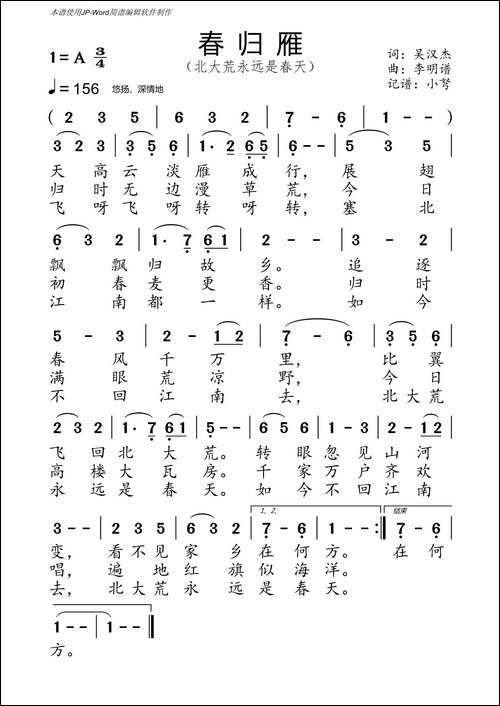 本谱使用JP-Word简谱编辑软件制作
春归雁
1=A 3/4
（北大荒永远是春天）
词：吴汉杰
曲：李明谱
记谱：小弩
♩=156 悠扬、深情地
( 2 3 5 | 6 3 2 | 7 - 6 | 1 - - )
3 2 3 | 3 5 6 | 1· 2 6 5 | 6 - - | 5 3 5
天高云淡雁成行，展翅
归时无边漫草荒，今日
飞呀飞呀转呀转，塞北
6 3 2 | 1· 7 6 1 | 2 - - | 3 - 2
飘飘归故乡。追逐
初春麦更香。归时
江南都一样。如今
5 - 3 | 2 - 1 2 | 7 - 6 | 3 5 6
春风千万里，比翼
满眼荒凉野，今日
不回江南去，北大荒
2 2 3 | 1· 7 6 1 | 5 - - | 6 5 6 | 1 3 5 | 2 - 1 2
飞回北大荒。转眼忽见山河
高楼大瓦房。千家万户齐欢
永远是春天。如今不回江南
1、2、
结束
3 - - | 2 3 5 | 6 3 2 | 7 - 6 | 1 - - :| 7 - 6
变，看不见家乡在何方。在何
唱，遍地红旗似海洋。
去，北大荒永远是春天。
1 - - | 1 - - ||
方。